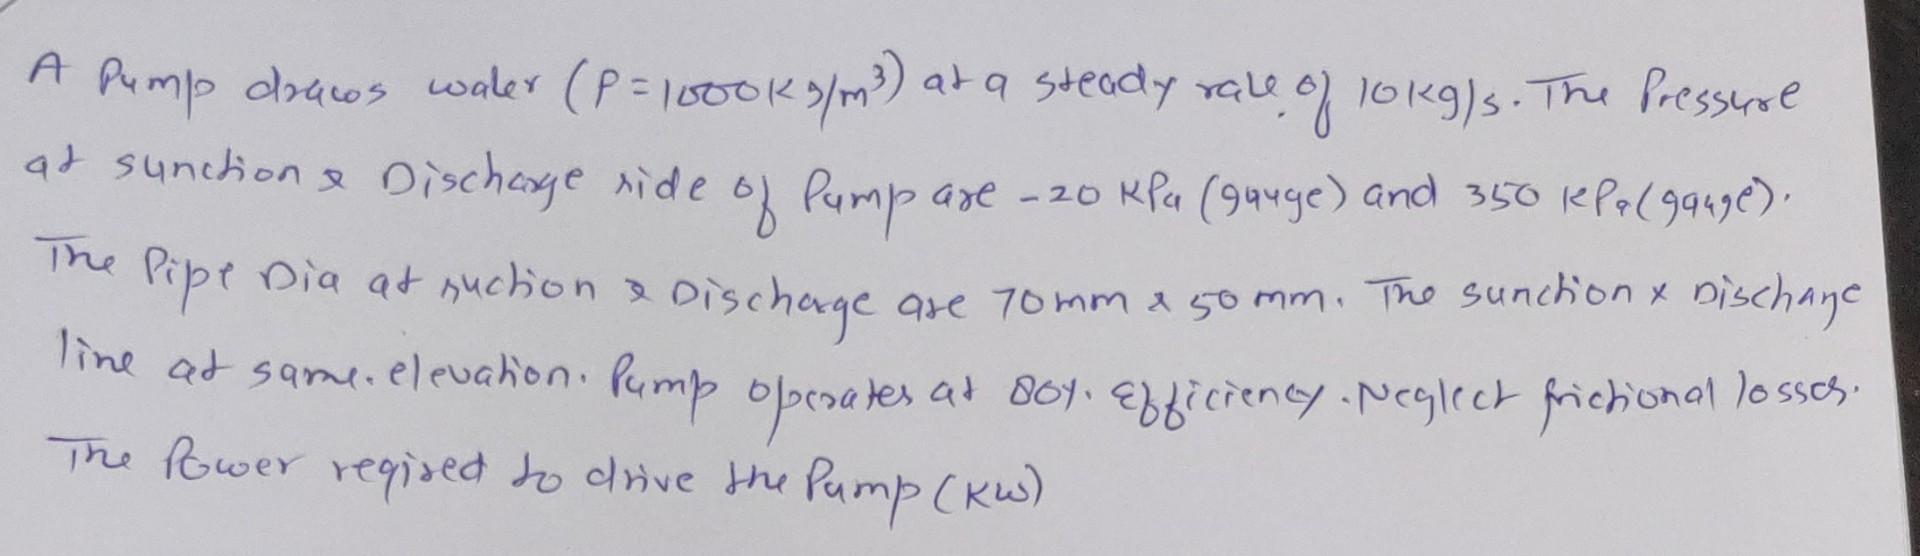 A Pump draws water (ρ=1000kg/m³) at a steady rate of 10kg/s. The Pressure
at sunction & Discharge side of Pump are -20 KPa (gauge) and 350 KPa(gauge).
The Pipe Dia at suction & Discharge are 70mm & 50mm. The sunction & Discharge
line at same. elevation. Pump operates at 80%. Efficiency. Neglect frictional losses.
The Power reqired to drive the Pump (KW)